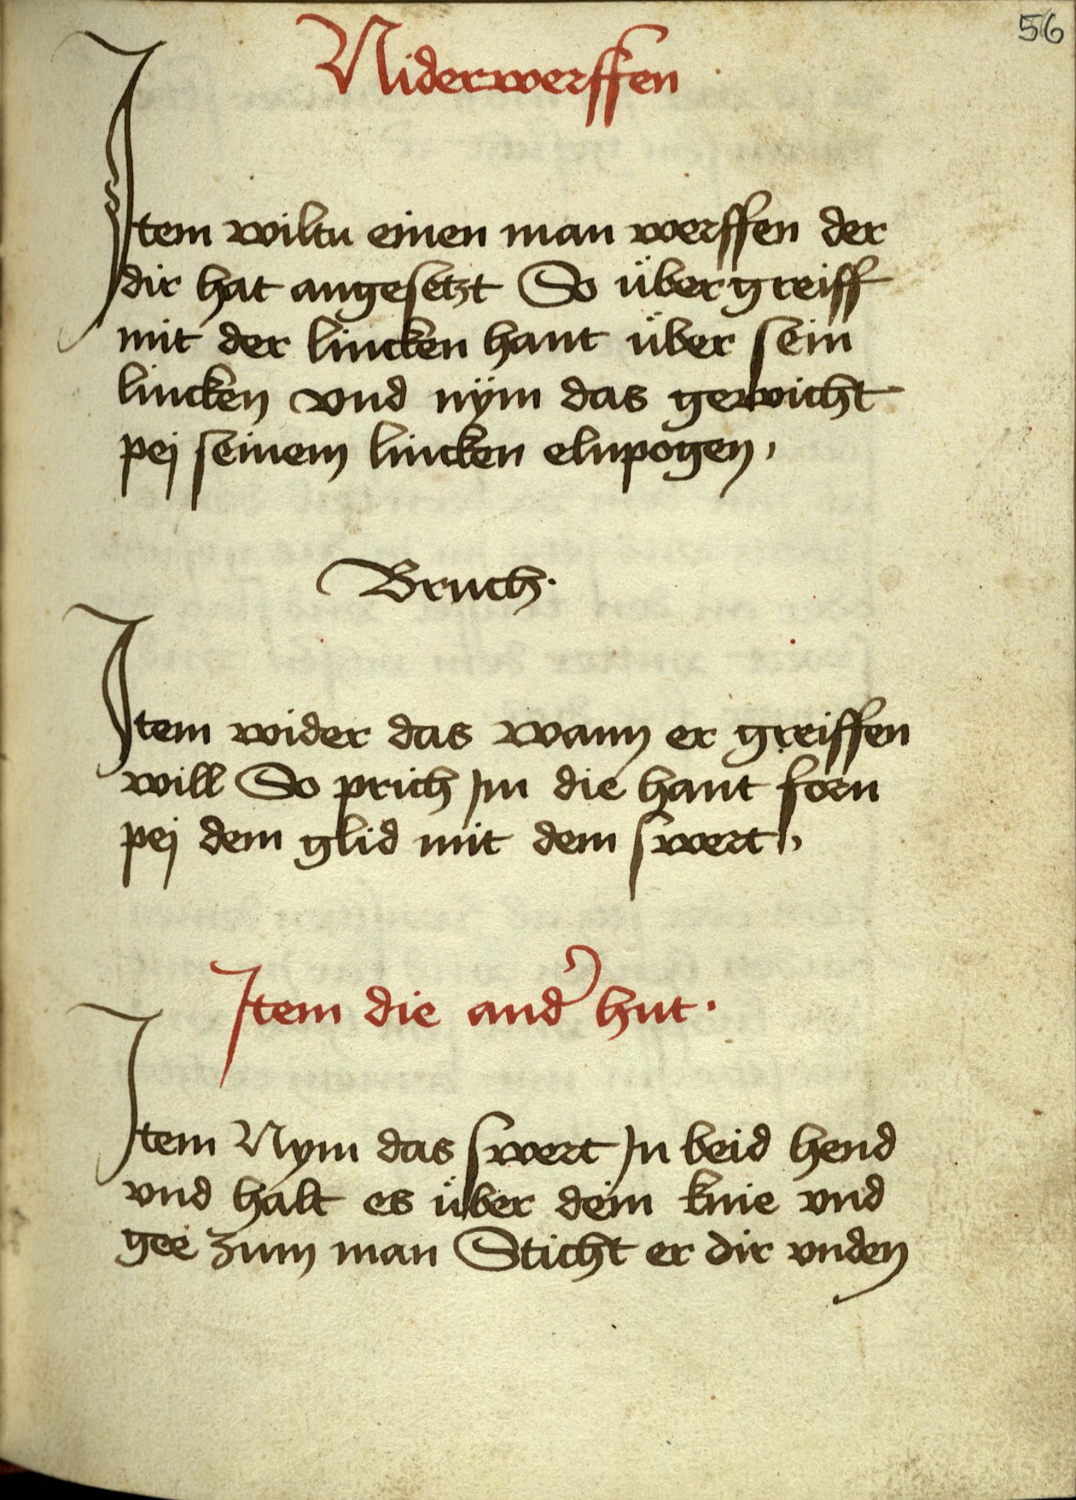 56
Niderwerffen
Item wiltu einen man werffen der
dir hat angesetzt So über greiff
mit der lincken hant über sein
lincken vnd nÿm das gewicht
pej seinem lincken elnpogen,
Bruch.
Item wider das wann er greiffen
will So prich Jm die hant forn
pej dem glid mit dem swert,
Item die and̕ hut.
Item Nym das swert Jn beid hend
vnd halt es über dein knie vnd
gee zum man Sticht er dir vnden